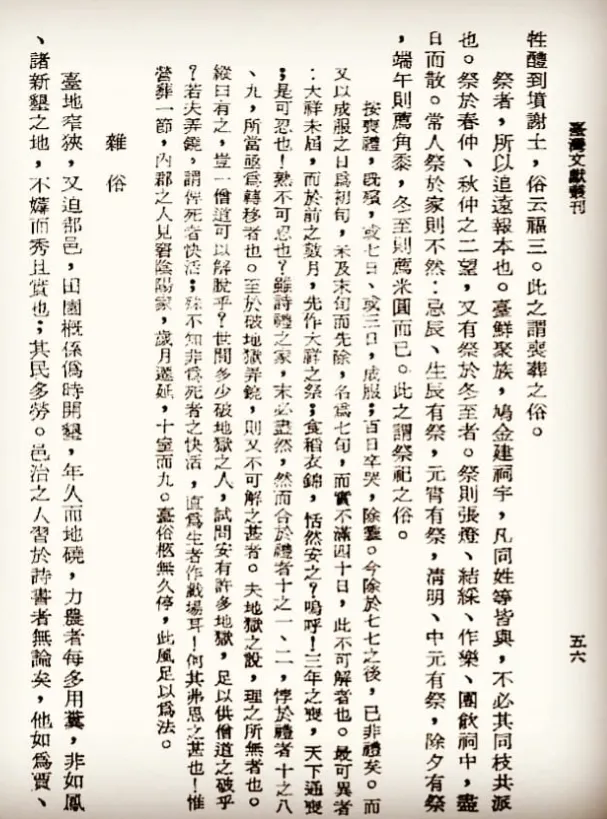 臺灣文獻叢刊
五六
牲醴到墳謝土，俗云福三。此之謂喪葬之俗。
祭者，所以追遠報本也。臺鮮聚族，鳩金建祠宇，凡同姓等皆與，不必其同枝共派
也。祭於春仲、秋仲之二望，又有祭於冬至者。祭則張燈、結綵、作樂、團飲祠中，盡
日而散。常人祭於家則不然：忌辰、生辰有祭，元宵有祭，清明、中元有祭，除夕有祭
，端午則薦角黍，冬至則薦米圓而已。此之謂祭祀之俗。
按喪禮，既殯，或七日、或三日，成服；百日卒哭，除靈。今除於七七之後，已非禮矣。而
又以成服之日爲初旬，未及末旬而先除，名爲七旬，而實不滿四十日，此不可解者也。最可異者
：大祥未屆，而於前之數月，先作大祥之祭；食稻衣錦，恬然安之？嗚呼！三年之喪，天下通喪
；是可忍也！孰不可忍也？雖詩禮之家，未必盡然，然而合於禮者十之一、二，悖於禮者十之八
、九，所當亟爲轉移者也。至於破地獄弄鐃，則又不可解之甚者。夫地獄之說，理之所無者也。
縱曰有之，豈一僧道可以解脫乎？世間多少破地獄之人，試問安有許多地獄，足以供僧道之破乎
？若夫弄鐃，謂俾死者快活；殊不知非爲死者之快活，直爲生者作戲場耳！何其弗思之甚也！惟
營葬一節，內郡之人見窘陰陽家，歲月遷延，十室而九。臺俗柩無久停，此風足以爲法。
雜俗
臺地窄狹，又迫郡邑，田園概係僞時開墾，年久而地磽，力農者每多用糞，非如鳳
、諸新墾之地，不糞而秀且實也；其民多勞。邑治之人習於詩書者無論矣，他如爲賈、